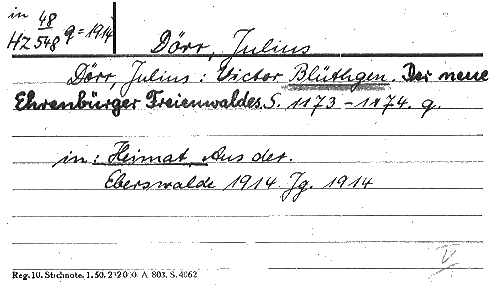 in 48
HZ 548 q = 1914
Dörr, Julius
Dörr, Julius : Victor Blüthgen. Der neue
Ehrenbürger Freienwaldes. S. 1173-1174. q.
in : Heimat, Aus der.
Eberswalde 1914. Jg. 1914
V
Reg. 10. Stichnote. 1. 50. 2320 0. A 803. S. 4062